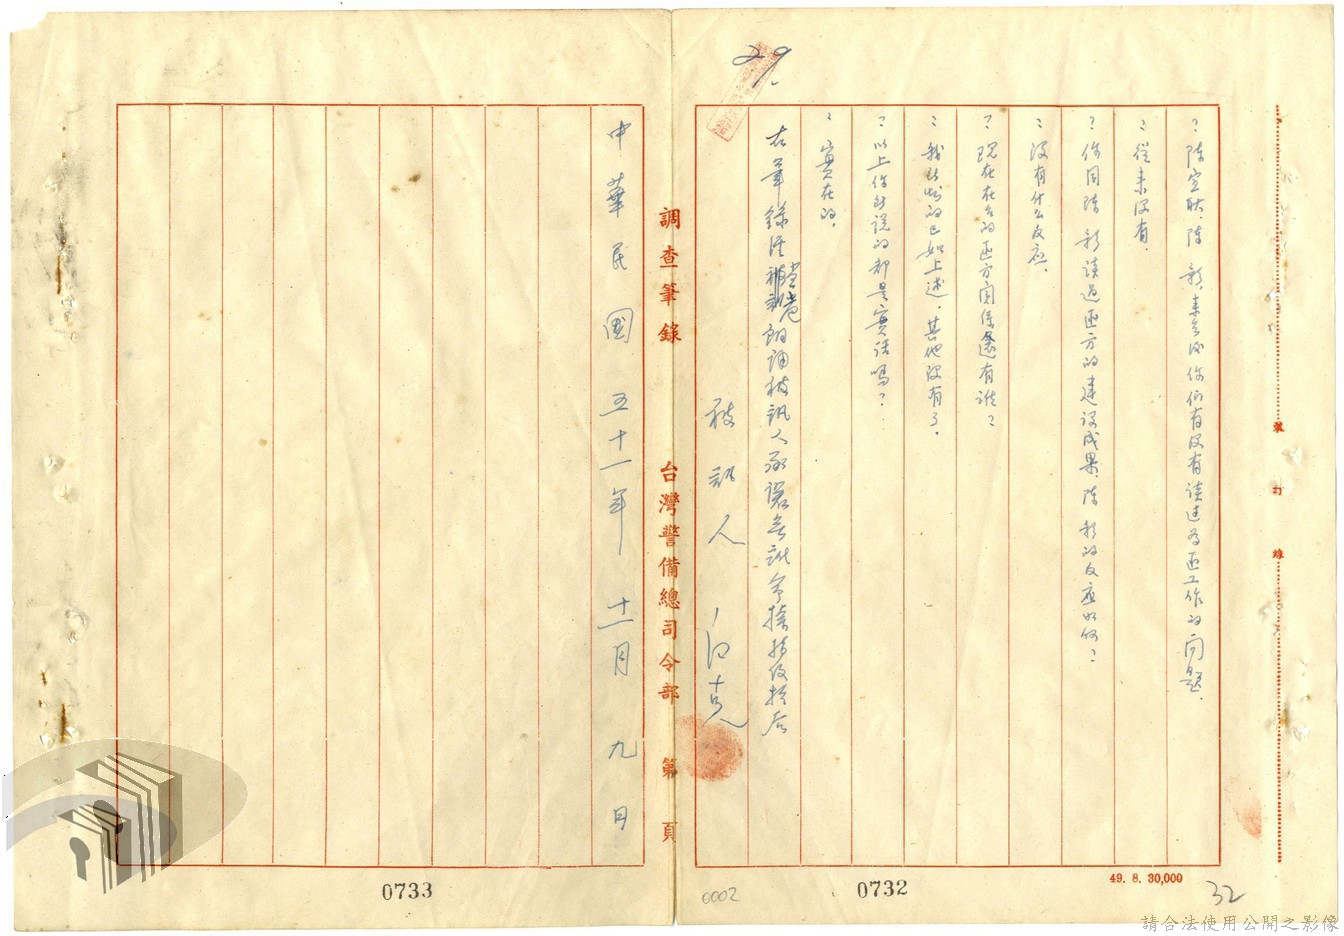 29.
？陳宣耿、陳　新，來台後你們有沒有談过為匪工作的问題.
：從来沒有.
？你同陳　新談過匪方的建設成果，陳　新的反應如何？
：沒有什么反應.
？现在在台的匪方関係還有誰？
：我所知的已如上述，其他沒有了.
？以上你所説的都是實话嗎？
：實在的.
右筆錄經當庭朗誦被訊人承認無訛令捺指紋於后
被訊人
調查筆錄　台灣警備總司令部　第　頁
中華民國五十一年十一月九日
裝訂線
49. 8. 30,000
0732
32
0002
0733
請合法使用公開之影像